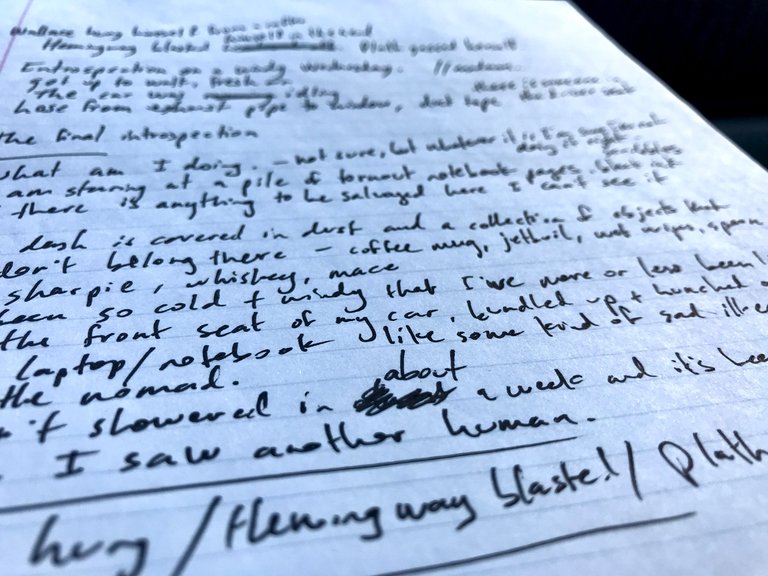 Wallace hung himself from a rafter
Hemingway blasted himself in the head Plath gassed herself
Introspection on a windy Wednesday.
got up to wait, fresh
The car was idling
hose from exhaust pipe to window, duct tape
the final introspection
what am I doing. - not sure, but whatever it is I'm
am staring at a pile of tornout notebook pages,
there is anything to be salvaged here I can't see it
dash is covered in dust and a collection of objects that
don't belong there - coffee mug, jetboil, wet wipes, spoon
sharpie, whiskey, mace
been so cold + windy that I've more or less been
the front seat of my car, bundled up + hunched
laptop/notebook like some kind of sad
the nomad.
't showered in about a week and it's been
I saw another human.
hung / Hemingway blasted / Plath